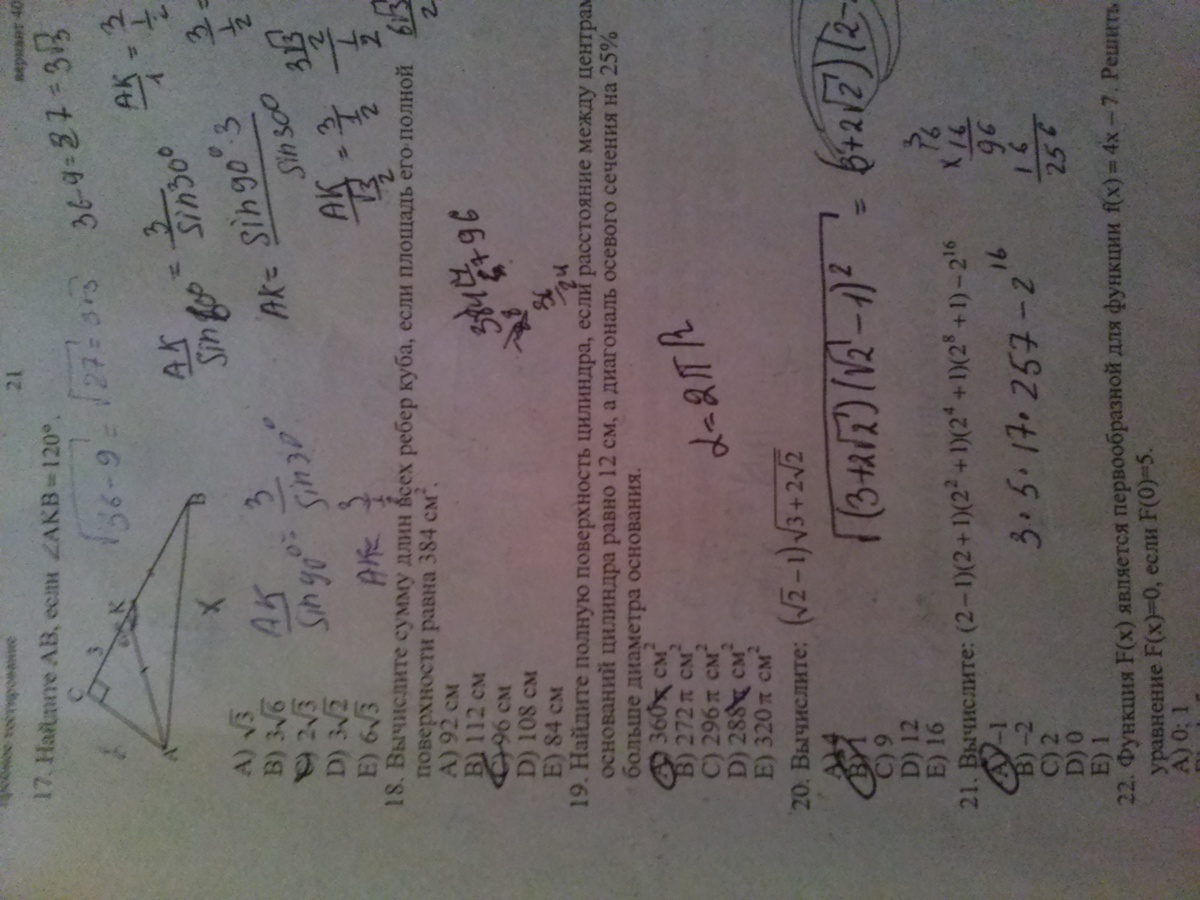 вариант 40
21
17. Найдите AB, если ∠AKB = 120°.
√36-9 = √27 = 3√3
36-9=27=3√3
C
3
K
B
A
x
AK/sin90° = 3/sin30°
AK = sin90°·3/sin30°
A) √3
B) 3√6
C) 2√3
D) 3√2
E) 6√3
18. Вычислите сумму длин всех ребер куба, если площадь его полной
поверхности равна 384 см².
A) 92 см
B) 112 см
C) 96 см
D) 108 см
E) 84 см
19. Найдите полную поверхность цилиндра, если расстояние между центрам
основаниий цилиндра равно 12 см, а диагональ осевого сечения на 25%
больше диаметра основания.
A) 360π см²
B) 272π см²
C) 296π см²
D) 288π см²
E) 320π см²
20. Вычислите: (√2 − 1)√3 + 2√2
√(3+2√2)(√2−1)² = (3+2√2)(2-
A) 4
B) 1
C) 9
D) 12
E) 16
21. Вычислите: (2 − 1)(2 + 1)(2² + 1)(2⁴ + 1)(2⁸ + 1) − 2¹⁶
3·5·17·257 − 2¹⁶
16
x 16
96
16
256
A) −1
B) −2
C) 2
D) 0
E) 1
22. Функция F(x) является первообразной для функции f(x) = 4x − 7. Решить
уравнение F(x)=0, если F(0)=5.
A) 0; 1